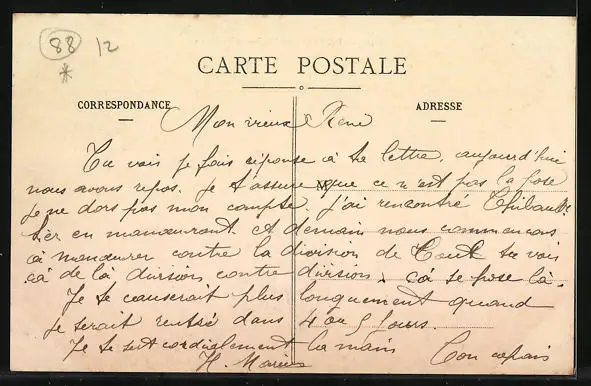 88 12
*
CARTE POSTALE
CORRESPONDANCE
ADRESSE
Mon vieux René
Tu vois je fais réponse à te lettre, aujourd'hui
nous avons repos. Je t'assure que ce n'est pas la pose
je ne dors pas mon compte, j'ai rencontré Thibault
hier en manœuvrant et demain nous commencons
à manœuvrer contre la division de Toul tu vois
ça de là division contre division, ça se pose là.
Je te causerait plus longuement quand
je serait rentré dans 4 ou 5 jours.
Je te sert cordialement la main
Ton copain
H. Marius